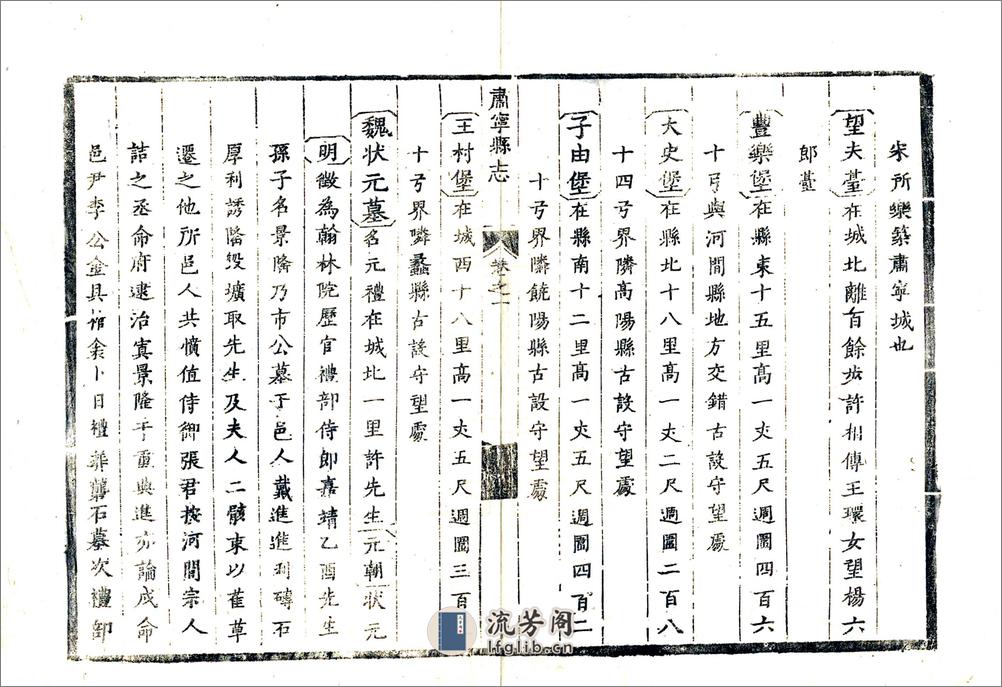 宋所樂築肅寧城也
望夫臺在城北離百餘步許相傳王環女望楊六
郎臺
豐樂堡在縣東十五里高一丈五尺週圍四百六
十弓與河間縣地方交錯古設守望處
大史堡在縣北十八里高一丈二尺週圍二百八
十四弓界隣高陽縣古設守望處
子由堡在縣南十二里高一丈五尺週圍四百二
十弓界隣饒陽縣古設守望處
肅寧縣志
卷之一
王村堡在城西十八里高一丈五尺週圍三百
十弓界隣蠡縣古設守望處
魏狀元墓名元禮在城北一里許先生元朝狀元
明徵為翰林院歷官禮部侍郎嘉靖乙酉先生
孫子名景隆乃市公墓于邑人戴進進利磚石
厚利誘隆毀壙取先生及夫人二骸束以萑草
遷之他所邑人共憤值侍御張君按河間宗人
詰之丞命府逮治寘景隆于重典進亦論戍命
邑尹李公金具棺衾卜日禮葬龔石墓次禮部
流芳阁
lfglib.cn